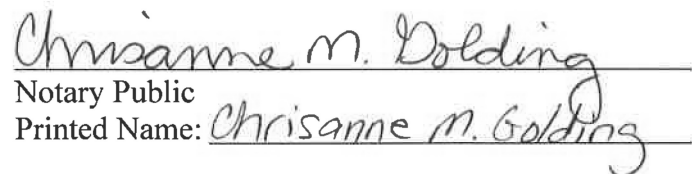 Chrisanne M. Golding
Notary Public
Printed Name: Chrisanne M. Golding